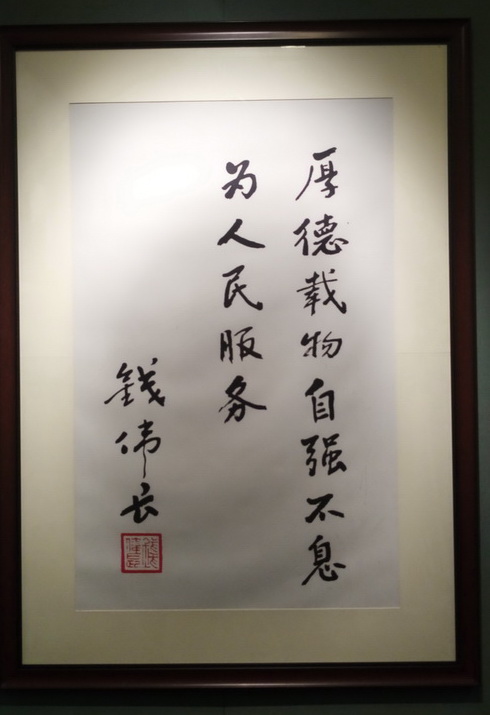 厚德载物自强不息
为人民服务
钱伟长